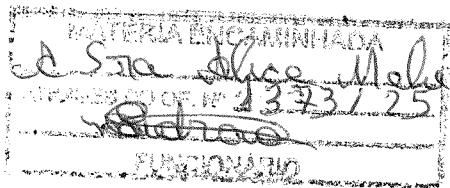 MATÉRIA ENCAMINHADA
A Sra Alice Melu
OF. Nº 1373/25
FUNCIONÁRIO